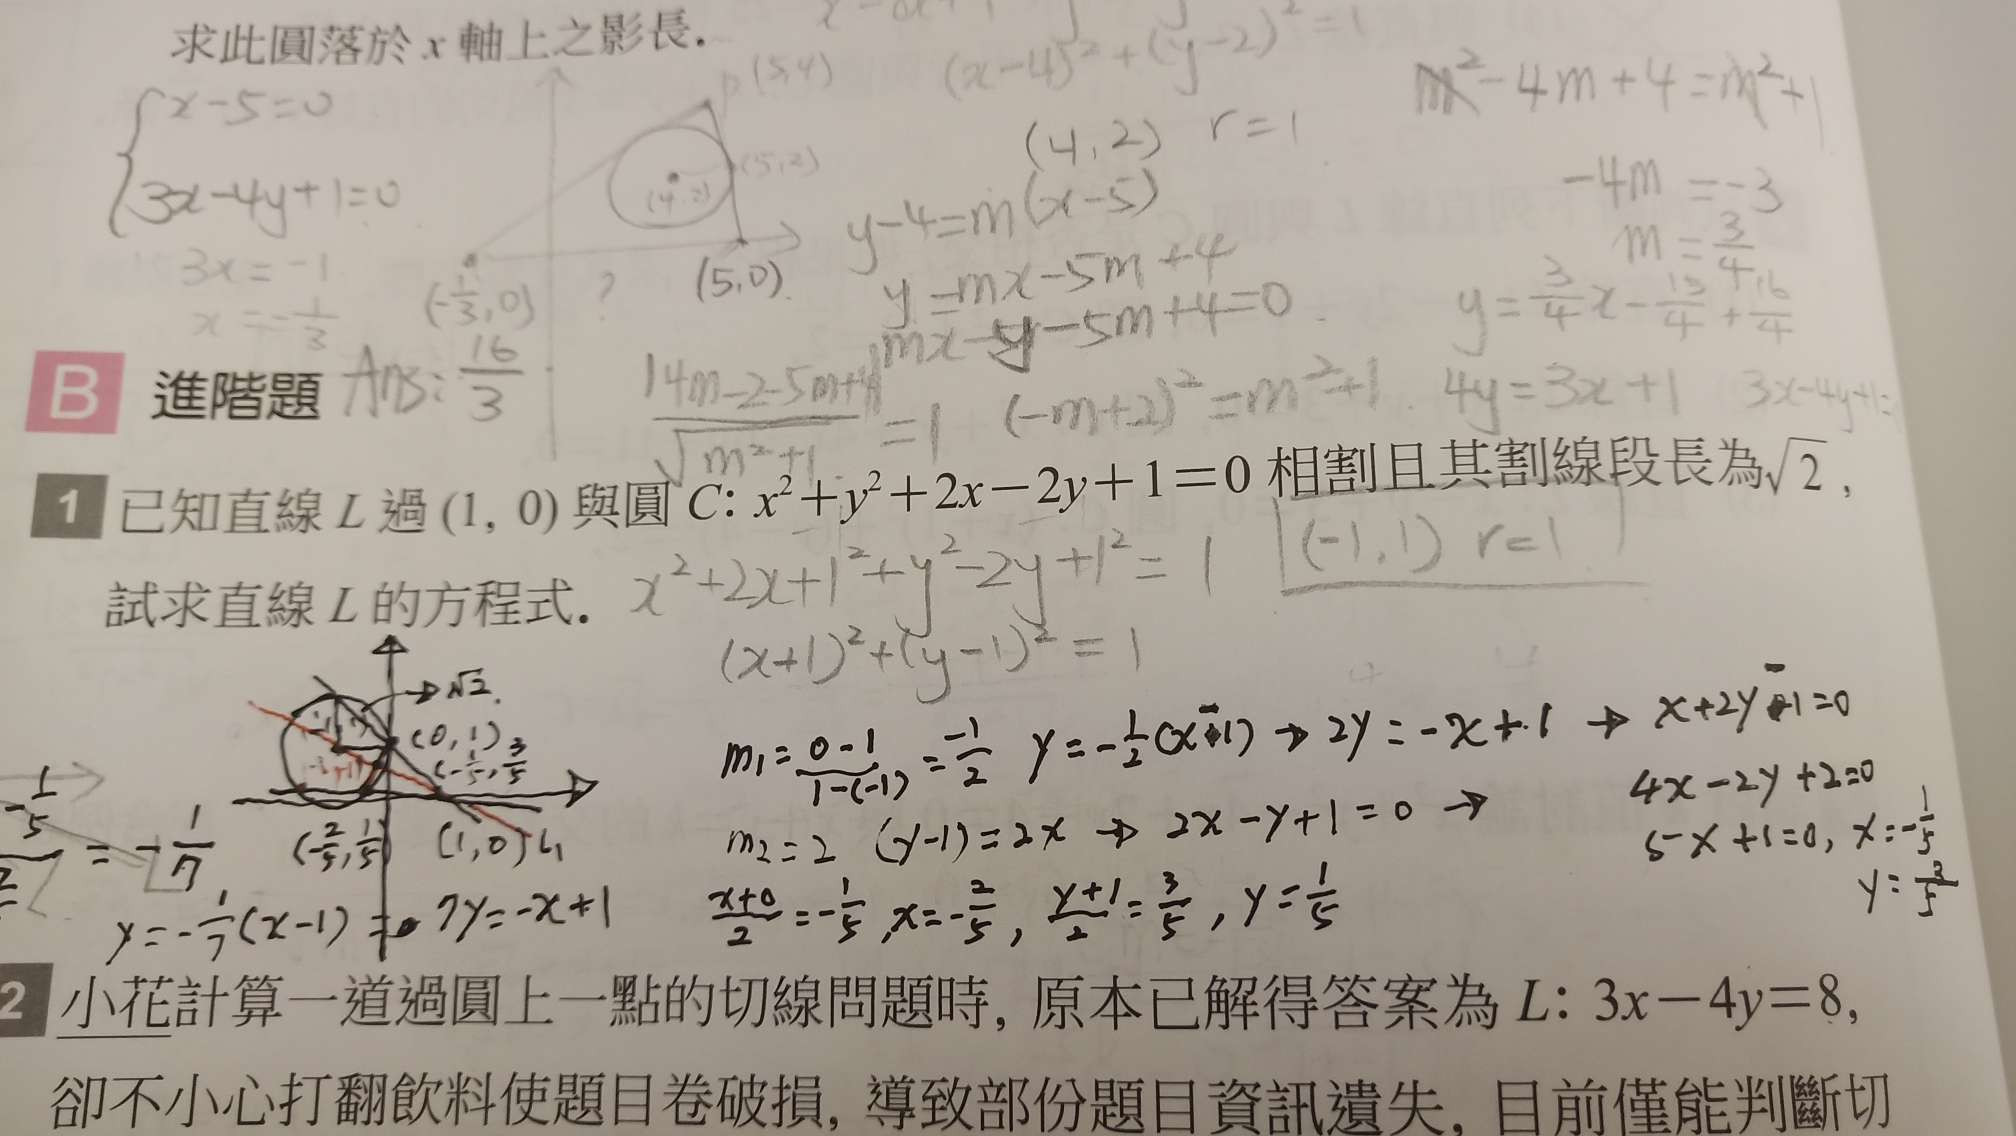 求此圓落於 x 軸上之影長.
(x-4)²+(y-2)²=1
m²-4m+4=m²+1
x-5=0
3x-4y+1=0
3x=-1
x=-1/3
P(5,4)
(5,2)
(4,2)
(-1/3,0)
?
(5,0)
(4,2) r=1
y-4=m(x-5)
y=mx-5m+4
mx-y-5m+4=0
-4m=-3
m=3/4
y=3/4x-15/4+16/4
B 進階題 Ans: 16/3
|4m-2-5m+4|/√m²+1=1 (-m+2)²=m²+1 4y=3x+1 3x-4y+1=
1 已知直線 L 過 (1, 0) 與圓 C: x²+y²+2x-2y+1=0 相割且其割線段長為√2,
試求直線 L 的方程式.
x²+2x+1²+y²-2y+1²=1 (-1,1) r=1
(x+1)²+(y-1)²=1
√2
(0,1)
(-1/5,3/5)
(-2/5,1/5) (1,0) L₁
m₁=0-1/1-(-1)=-1/2 y=-1/2(x-1)→2y=-x+1→x+2y-1=0
m₂=2 (y-1)=2x→2x-y+1=0→4x-2y+2=0
5x+1=0, x=-1/5
y=3/5
x+0/2=-1/5, x=-2/5, y+1/2=3/5, y=1/5
=-1/7
y=-1/7(x-1)=7y=-x+1
2 小花計算一道過圓上一點的切線問題時, 原本已解得答案為 L: 3x-4y=8,
卻不小心打翻飲料使題目卷破損, 導致部份題目資訊遺失, 目前僅能判斷切